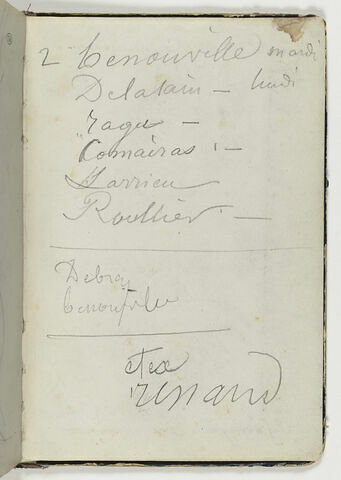 2 Benouville mardi
Delalain — lundi
ragu —
Comairas —
Larrieu
Roullier —
Debray
Benouville
etex
renard